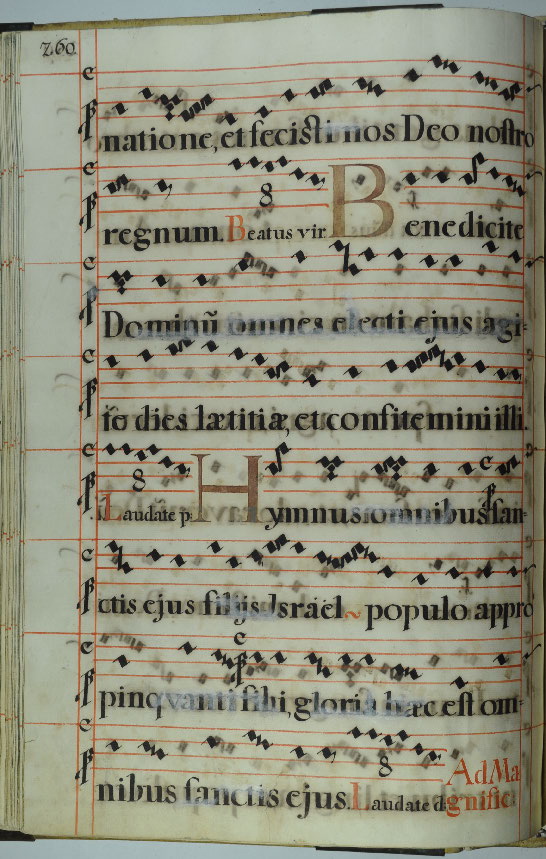 260
natione, et fecisti nos Deo nostro
regnum. Beatus vir 8 Benedicite
Dominũ omnes electi ejus agi-
te dies lætitiæ, et confitemini illi.
Laudate p. 8 Hymnus omnibus san-
ctis ejus filijs Israël ~ populo appro
pinquanti sibi, gloria hæc est om-
nibus sanctis ejus. Laudate d. 8 Ad Ma
gnific.